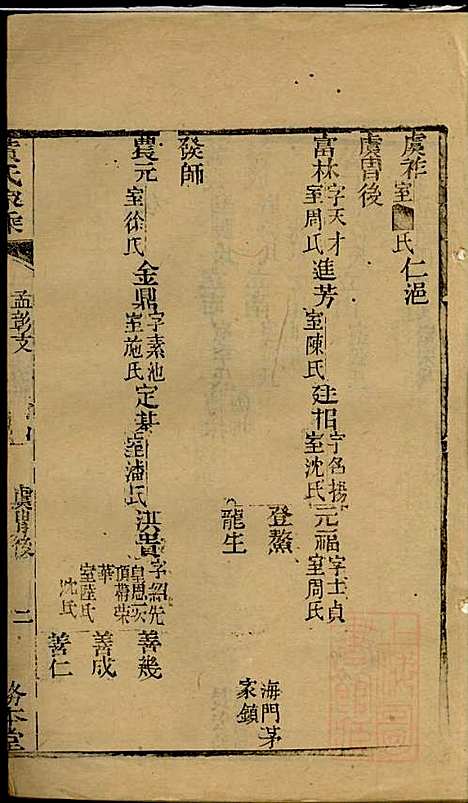 虞祚 室 氏 仁浥
虞胄後
富林 字天才 室周氏 進芳 室陳氏 廷相 字名揚 室沈氏 元福 字士貞 室周氏
登鰲 海門茅家鎮
龍生
發師
農元 室徐氏 金鼎 字素池 室施氏 定基 室潘氏 洪貴 字紹先 皇恩 頂帶榮華 室陸氏 沈氏 善幾
善成
善仁
黃氏家乘 孟彰支 虞胄後 二 務本堂